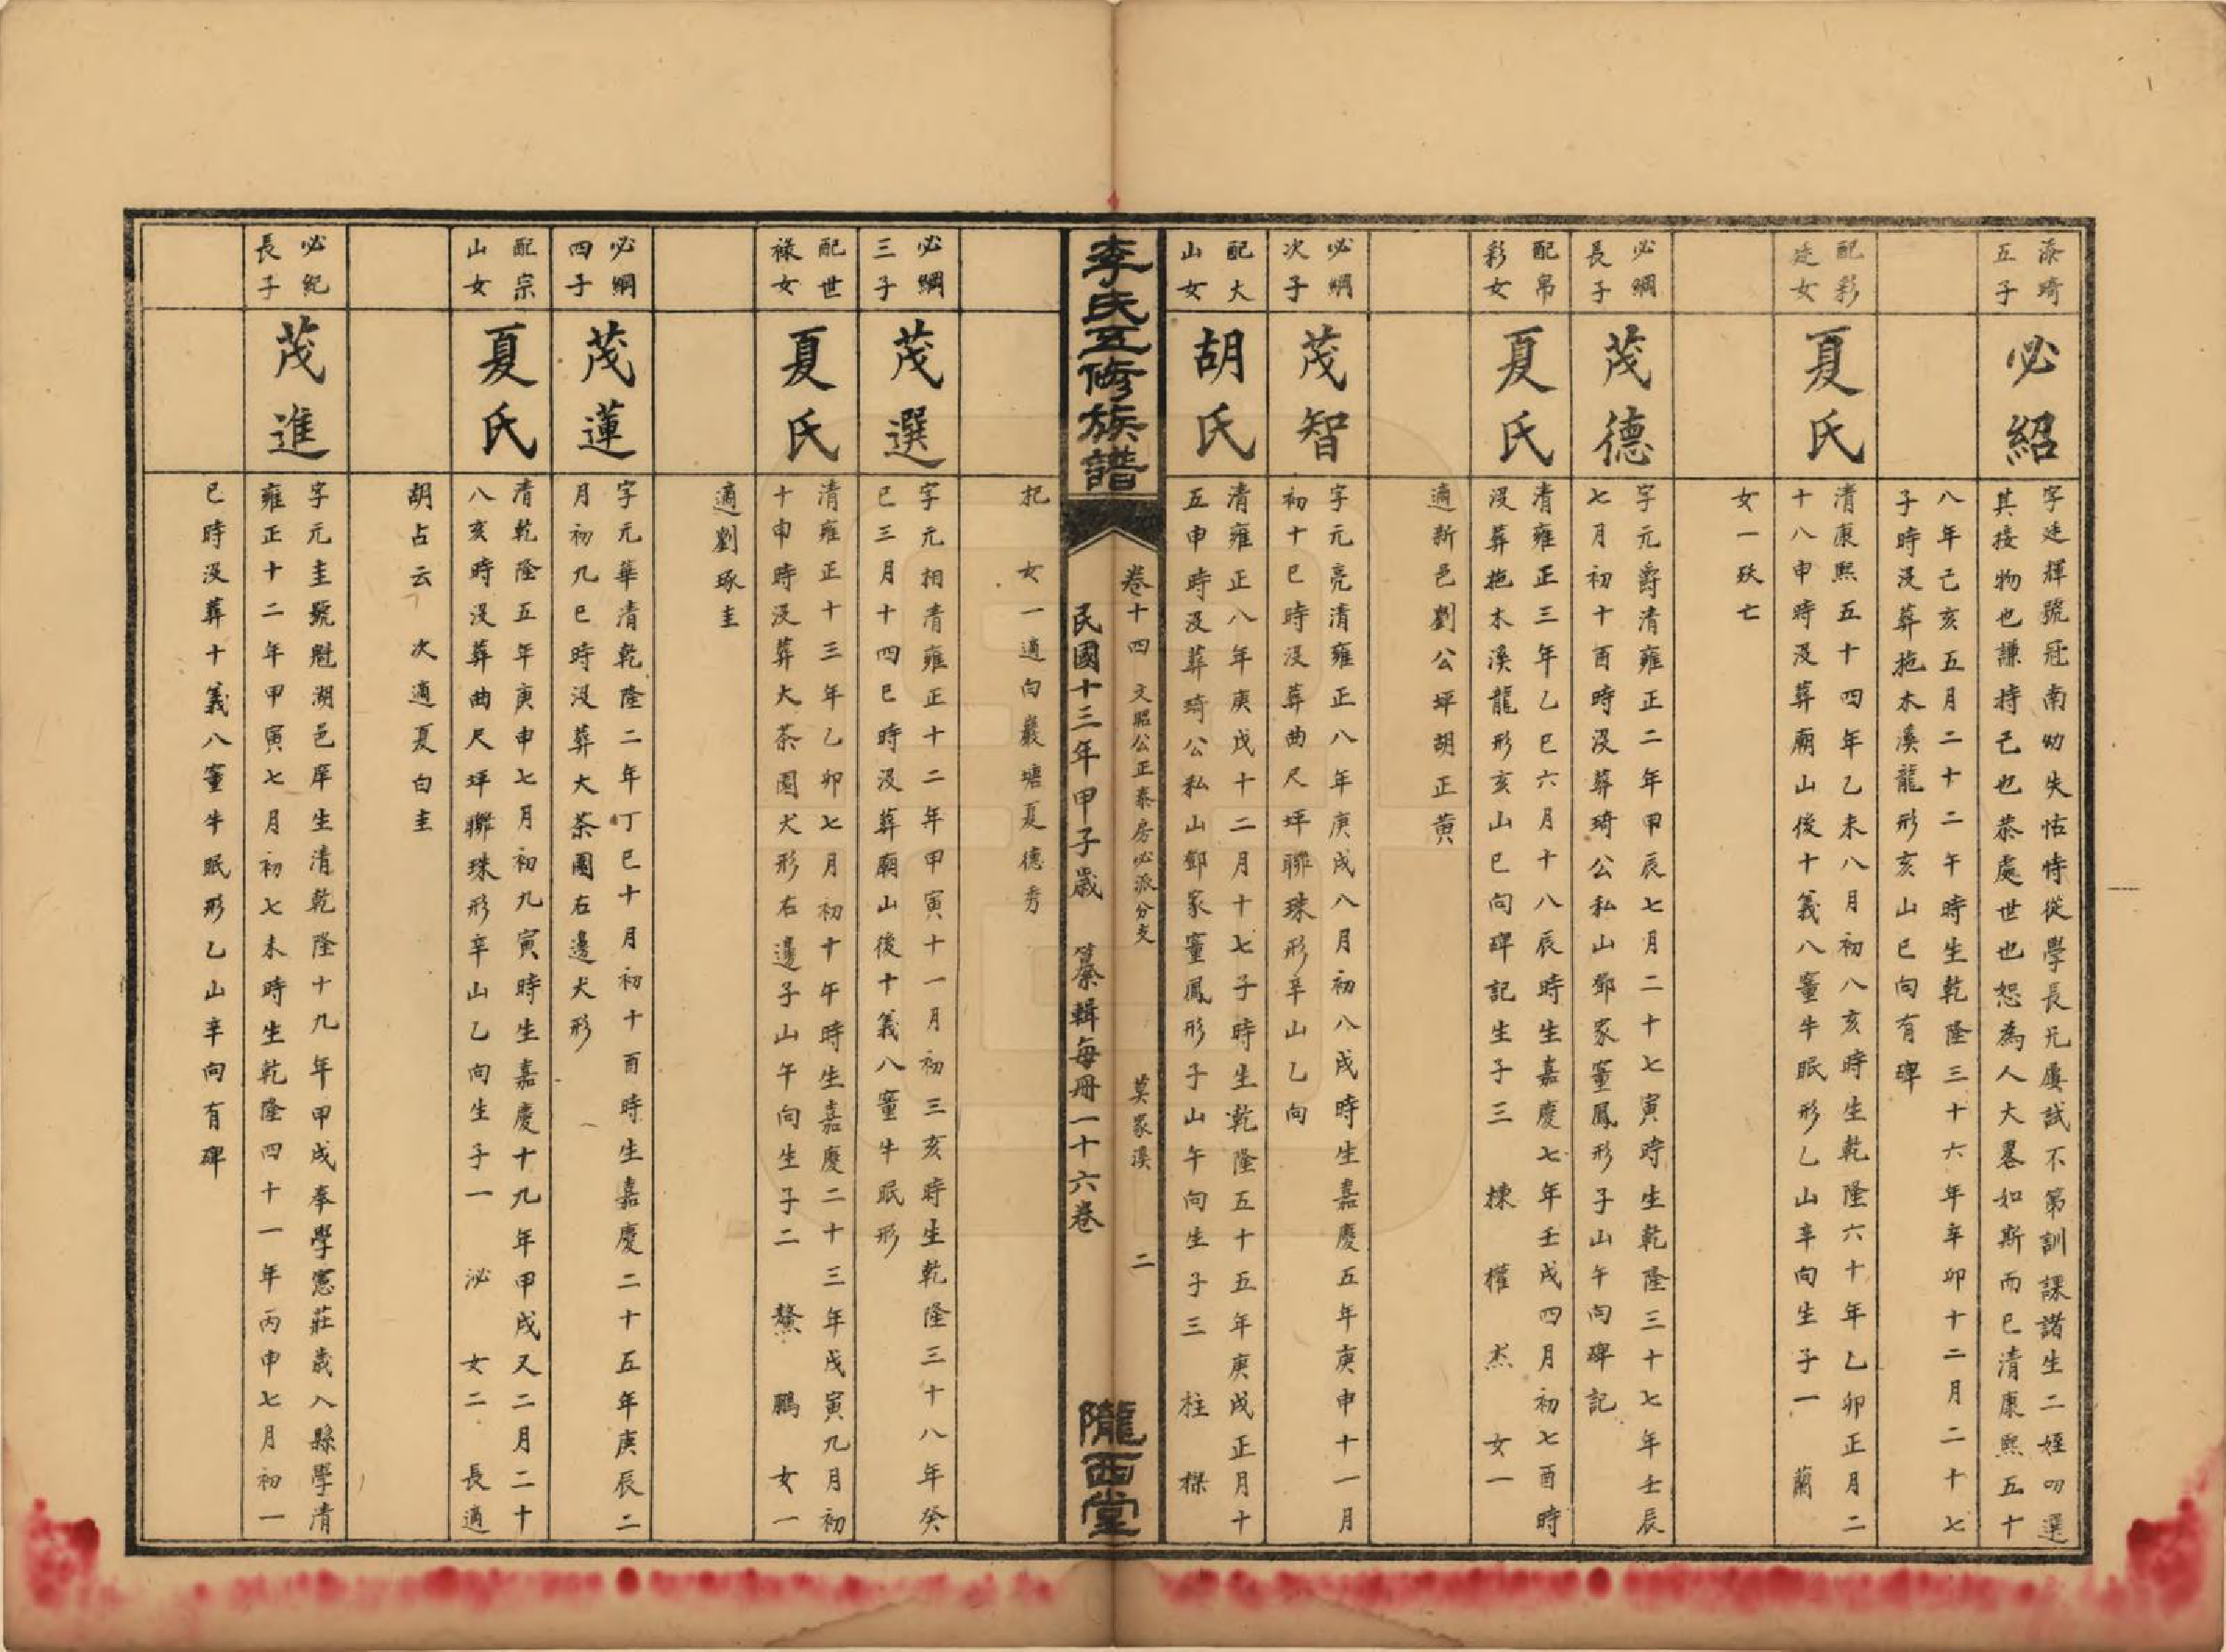 添琦
五子
必紹
字廷輝號冠南幼失怙恃從學長兄屢試不第訓課諸生二姪叨選
其接物也謙持己也恭處世也恕為人大畧如斯而已清康熙五十
八年己亥五月二十二午時生乾隆三十六年辛卯十二月二十七
子時没葬拖木溪龍形亥山巳向有碑
配彩
廷女
夏氏
清康熙五十四年乙未八月初八亥時生乾隆六十年乙卯正月二
十八申時没葬廟山後十義八窰牛眠形乙山辛向生子一 蘭
女一殀亡
必綱
長子
茂德
字元爵清雍正二年甲辰七月二十七寅時生乾隆三十七年壬辰
七月初十酉時没葬琦公私山鄧家窰鳳形子山午向碑記
配帛
彩女
夏氏
清雍正三年乙巳六月十八辰時生嘉慶七年壬戌四月初七酉時
没葬拖木溪龍形亥山巳向碑記生子三 棟 權 杰 女一
適新邑劉公坪胡正黄
必綱
次子
茂智
字元亮清雍正八年庚戌八月初八戌時生嘉慶五年庚申十一月
初十巳時没葬曲尺坪聯珠形辛山乙向
配大
山女
胡氏
清雍正八年庚戌十二月十七子時生乾隆五十五年庚戌正月十
五申時没葬琦公私山鄧家窰鳳形子山午向生子三 柱 樑
李氏五修族譜
卷十四 文昭公正泰房必派分支 莫家溪 二
民國十三年甲子歲 纂輯每册一十六卷
隴西堂
杞 女一適向巖塘夏德秀
必綱
三子
茂選
字元相清雍正十二年甲寅十一月初三亥時生乾隆三十八年癸
巳三月十四巳時没葬廟山後十義八窰牛眠形
配世
祿女
夏氏
清雍正十三年乙卯七月初十午時生嘉慶二十三年戊寅九月初
十申時没葬大茶園犬形右邊子山午向生子二 鰲 鵬 女一
適劉琢圭
必綱
四子
茂蓮
字元華清乾隆二年丁巳十月初十酉時生嘉慶二十五年庚辰二
月初九巳時没葬大茶園右邊犬形
配宗
山女
夏氏
清乾隆五年庚申七月初九寅時生嘉慶十九年甲戌又二月二十
八亥時没葬曲尺坪聯珠形辛山乙向生子一 泌 女二 長適
胡占云 次適夏白圭
必紀
長子
茂進
字元圭號魁湖邑庠生清乾隆十九年甲戌奉學憲莊歲入縣學清
雍正十二年甲寅七月初七未時生乾隆四十一年丙申七月初一
巳時没葬十義八窰牛眠形乙山辛向有碑